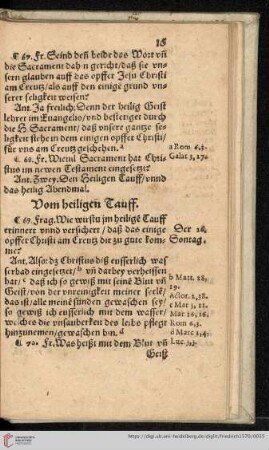 16
¶ 67. Fr. Seind deñ beide das Wort vñ
die Sacrament dahin gericht/ daß sie vn-
sern glauben auff das opffer Jesu Christi
am Creutz/ als auff den einige grund vn-
serer seligkeit weisen?
Ant. Ja freilich: Denn der heilig Geist
lehret im Euangelio/ vnd bestetiget durch
die H. Sacrament/ daß vnsere gantze se-
ligkeit stehe in dem einigen opffer Christi/
für vns am Creutz geschehen. a
a Rom. 6,3.
Galat 3, 27.
¶ 68. Fr. Wieuil Sacrament hat Chri-
stus im newen Testament eingesetzt?
Ant. Zwey. Den Heiligen Tauff/ vnnd
das heilig Abendmal.
Vom heiligen Tauff.
¶ 69. Frag. Wie wirstu im heiligē Tauff
erinnert vnnd versichert/ daß das einige
opffer Christi am Creutz dir zu gute kom-
me?
Der 26.
Sontag.
Ant. Also: dz Christus diß eusserlich was-
serbad eingesetzet/ b vñ darbey verheissen
hat/ c daß ich so gewiß mit seinē Blut vñ
Geist/ von der vnreinigkeit meiner seelē/
das ist/ alle meine sünden gewaschen sey/
so gewiß ich eusserlich mit dem wasser/
welches die vnsauberkeit des leibs pflegt
hinzunemen/ gewaschen bin. d
b Matt. 28,
19.
Act. 2, 38.
c Mat 3, 11.
Mar 16, 16.
Rom 6,3.
d Marc 1, 4.
Luc. 3,3.
¶ 70. Fr. Was heißt mit dem Blut vñ
Geist